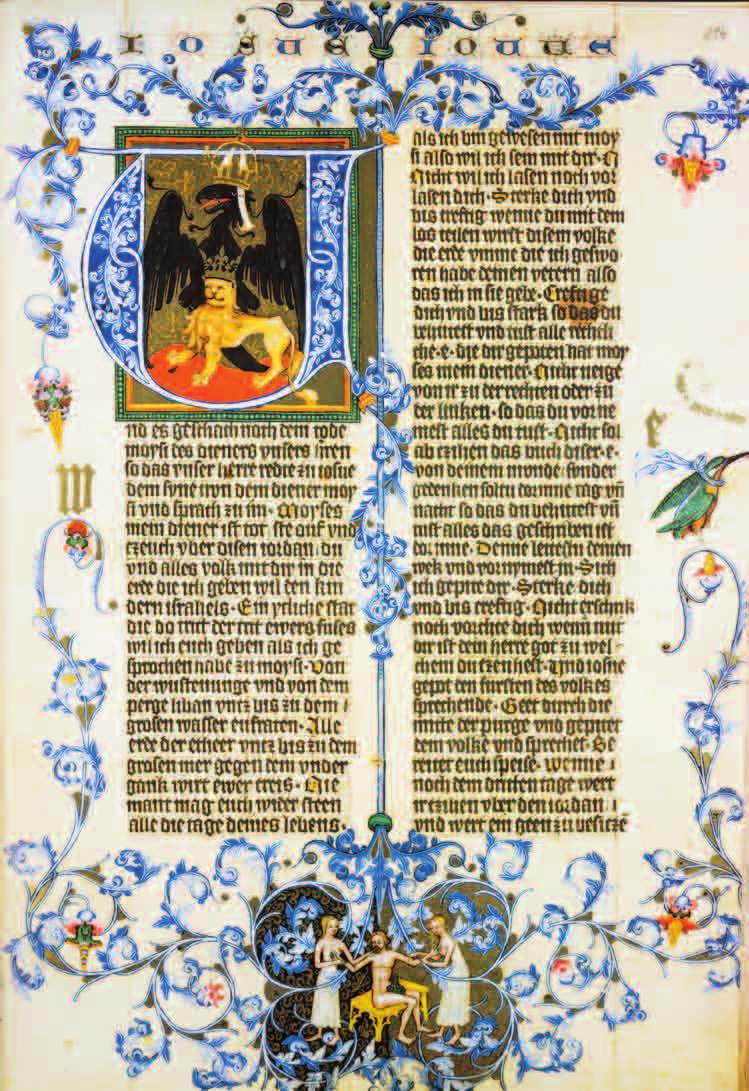 IOSUE IOUUE
214
nd es geschach noch dem tode
moysi des dieners unsers hren
so das unser herre redte zu iosue
dem sune nun dem diener moy
si und sprach zu im · Moyses
mein diener ist tot ste auf und
czeuch uber disen iordan du
und alles volk mit dir in die
erde die ich geben wil den kin
dern israhels · Ein ytliche stat
die do trit der trit ewers fuses
wil ich euch geben als ich ge
sprochen habe zu moysi · Von
der wustenunge und von dem
perge liban untz bis zu dem
grosen wasser eufraten · Alle
erde der etheer untz bis zu dem
grosen mer gegen dem under
gank wirt ewer creis · Nie
mant mag euch wider steen
alle die tage deines lebens ·
als ich bin gewesen mit moy
si also wil ich sein mit dir · N
Nicht wil ich lasen noch vor
lasen dich · Sterke dich und
bis creftig wenne du mit dem
los teilen wirst disem volke
die erde umme die ich geswo
ren habe deinen vetern also
das ich in sie gebe · Creftige
dich und bis stark so das du
behuttest und tust alle
che · e · die dir gepoten hat moy
ses mein diener · Nicht neige
von ir zu der rechten oder zu
der linken · so das du vor ne
mest alles du tust · Nicht sol
ab czihen das buch diser · e ·
von deinem munde sunder
gedenken soltu dorinne tag vn̄
nacht so das du behuttest vn̄
tust alles das geschriben ist
dorinne · Denne deinen
wek und vornymest in · Sich
ich gepite dir · Sterke dich
und bis creftig · Nicht erschrik
noch vorchte dich wenn mit
dir ist dein herre got zu wel
chem du czenhest · Und iosue
gepot den fursten des volkes
sprechende · Geet durch die
mitte der purge und gepitet
dem volke und sprechet · Be
reitet euch speise · Wenne
noch dem dritten tage wert
ir czihen uber den iordan
und wert ein geen zu besicze
w
e